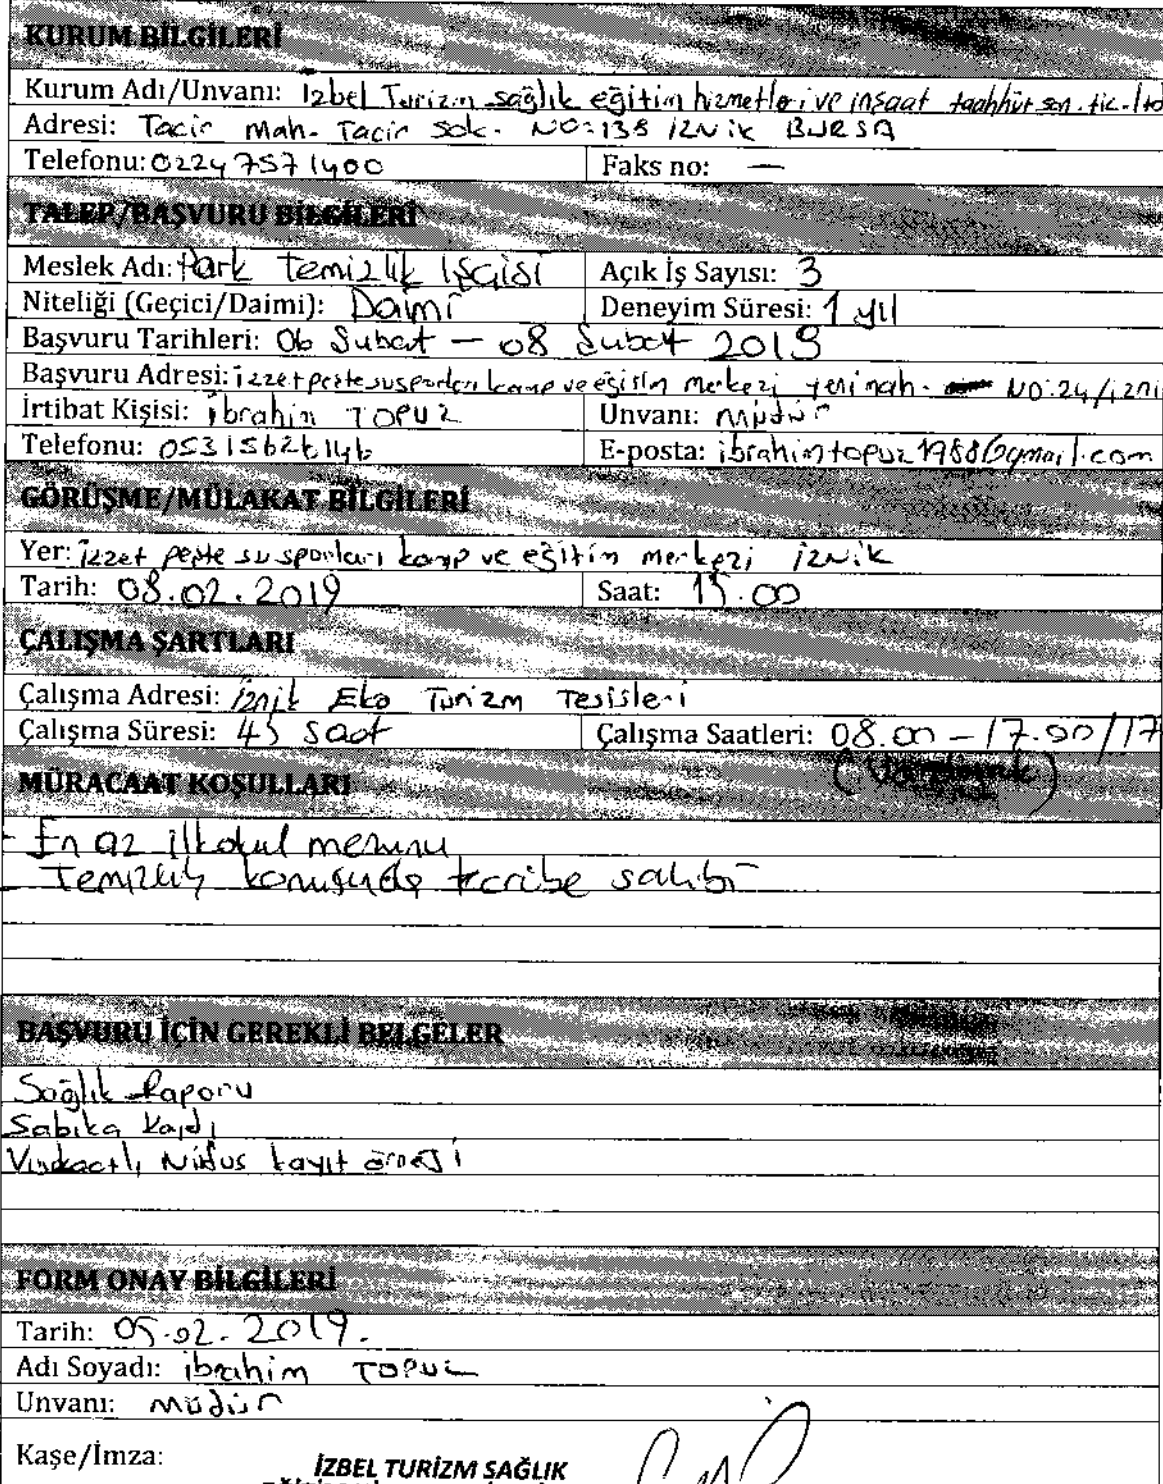 KURUM BİLGİLERİ
Kurum Adı/Unvanı: İzbel Turizm sağlık eğitim hizmetleri ve inşaat taahhüt san. tic. ltd
Adresi: Tacir Mah. Tacir Sok. NO:138 İZNİK BURSA
Telefonu: 02247571400 Faks no: —
TALEP/BAŞVURU BİLGİLERİ
Meslek Adı: Park Temizlik İşçisi Açık İş Sayısı: 3
Niteliği (Geçici/Daimi): Daimi Deneyim Süresi: 1 yıl
Başvuru Tarihleri: 06 Şubat – 08 Şubat 2019
Başvuru Adresi: izzet peste su sporları kamp ve eğitim merkezi yeni mah. NO:24/izni
İrtibat Kişisi: ibrahim TOPUZ Unvanı: Müdür
Telefonu: 05315626146 E-posta: ibrahimtopuz1988@gmail.com
GÖRÜŞME/MÜLAKAT BİLGİLERİ
Yer: izzet peste su sporları kamp ve eğitim merkezi iznik
Tarih: 08.02.2019 Saat: 15.00
ÇALIŞMA ŞARTLARI
Çalışma Adresi: İznik Eko Turizm Tesisleri
Çalışma Süresi: 45 saat Çalışma Saatleri: 08.00 – 17.00/17
MÜRACAAT KOŞULLARI
- En az ilkokul mezunu
- Temizlik konusunda tecribe sahibi
BAŞVURU İÇİN GEREKLİ BELGELER
Sağlık Raporu
Sabıka Kaydı
Vukuatlı Nüfus kayıt örneği
FORM ONAY BİLGİLERİ
Tarih: 05.02.2019.
Adı Soyadı: ibrahim TOPUZ
Unvanı: müdür
Kaşe/İmza:
İZBEL TURİZM SAĞLIK